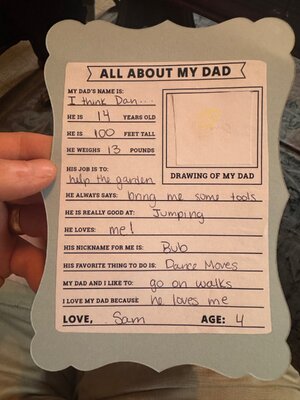 ALL ABOUT MY DAD
MY DAD'S NAME IS:
I think Dan...
HE IS 14 YEARS OLD
HE IS 100 FEET TALL
HE WEIGHS 13 POUNDS
HIS JOB IS TO:
help the garden
DRAWING OF MY DAD
HE ALWAYS SAYS: bring me some tools
HE IS REALLY GOOD AT: Jumping
HE LOVES: me!
HIS NICKNAME FOR ME IS: Bub
HIS FAVORITE THING TO DO IS: Dance Moves
MY DAD AND I LIKE TO: go on walks
I LOVE MY DAD BECAUSE he loves me
LOVE, Sam AGE: 4